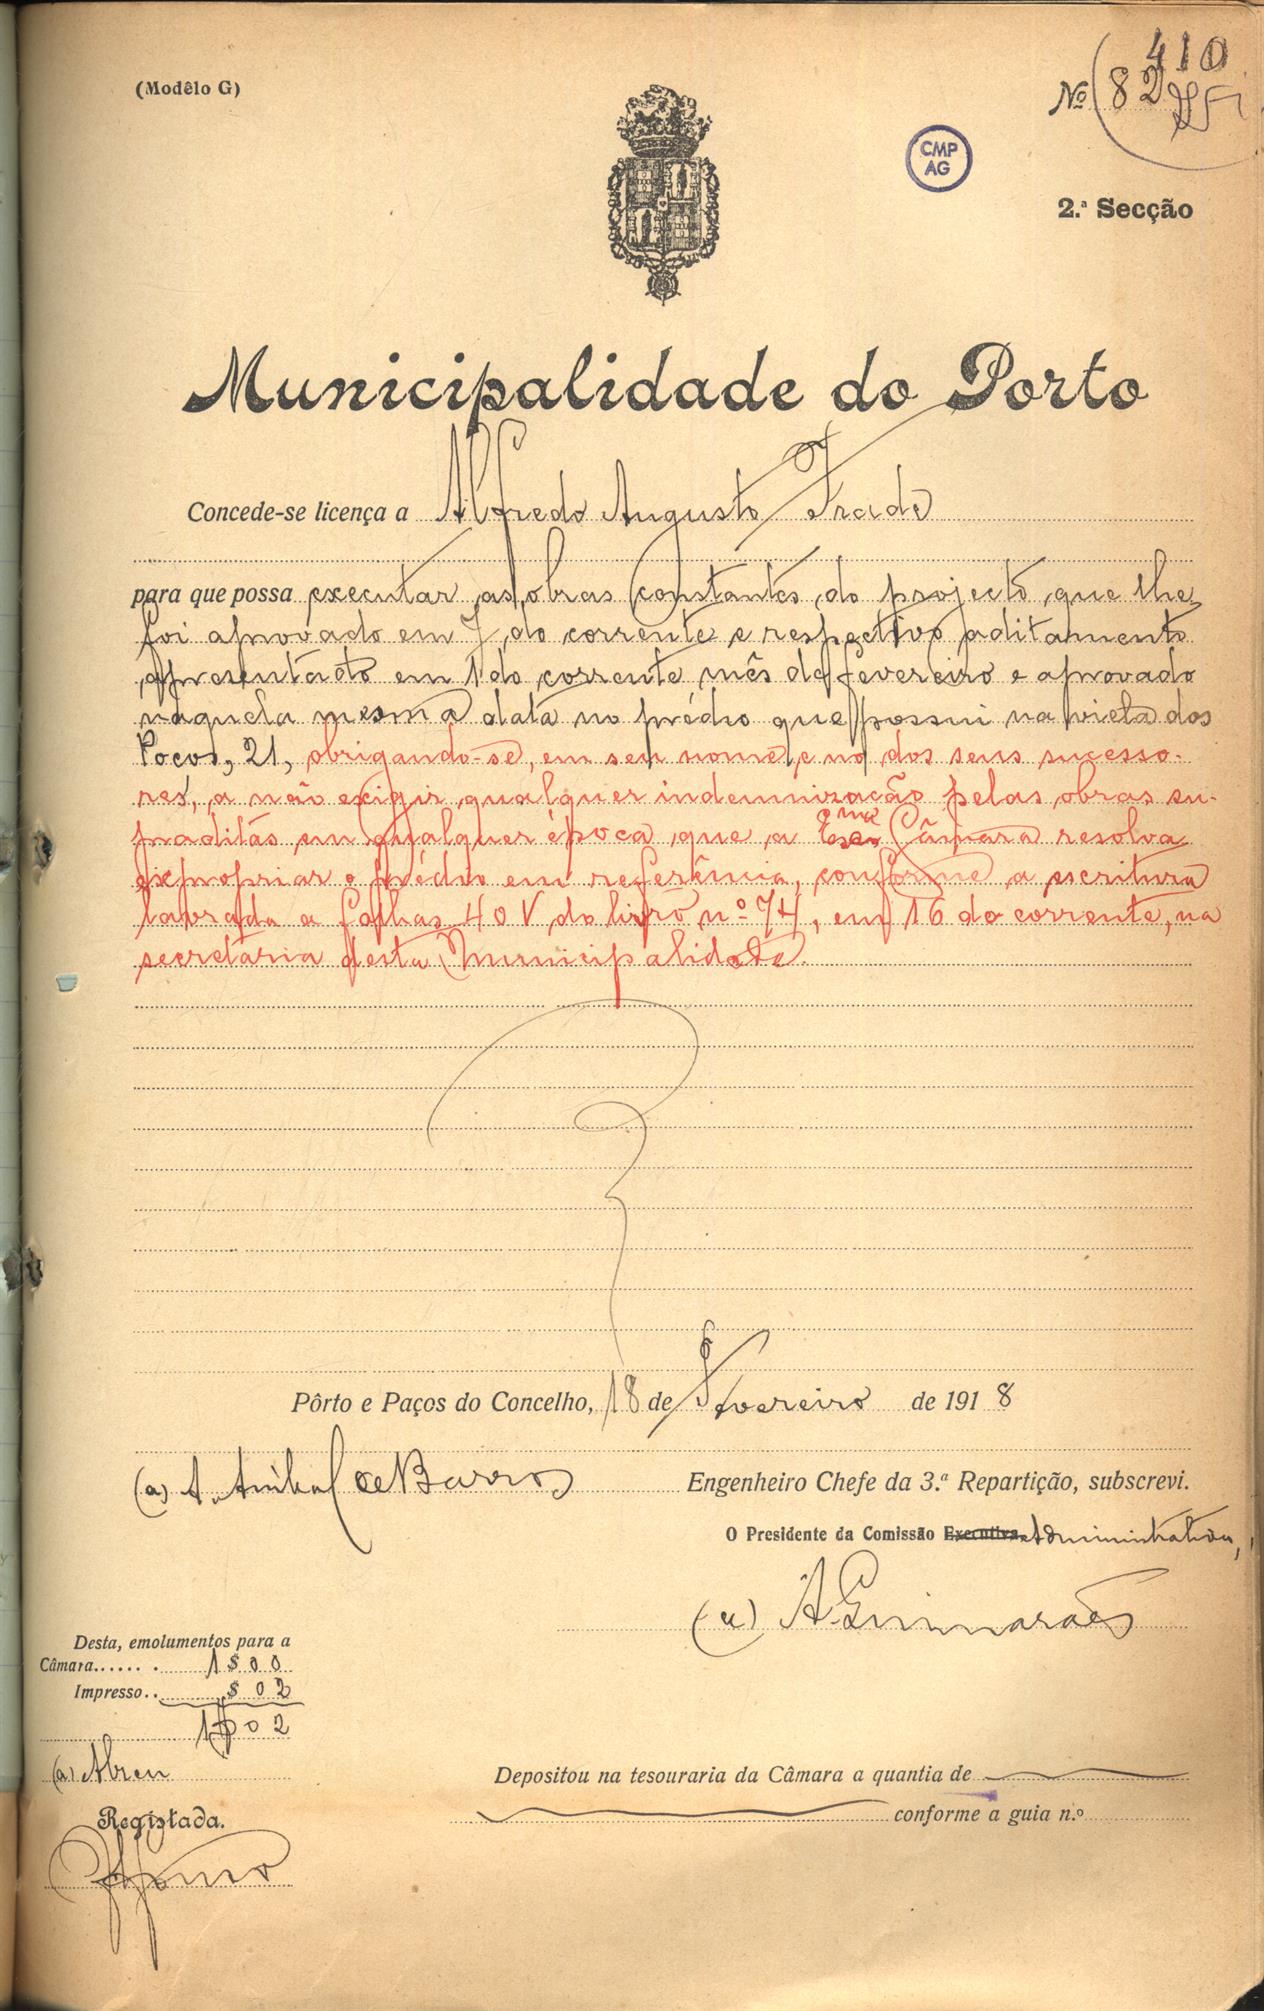 (Modêlo G)
410
Nº 82
CMP
AG
2.ª Secção
Municipalidade do Porto
Concede-se licença a Alfredo Augusto Frade
para que possa executar as obras constantes do projecto que lhe
foi aprovado em 7 do corrente e respectivo aditamento
apresentado em 1 do corrente mês de fevereiro e aprovado
naquela mesma data no prédio que possui na viela dos
Poços, 21, obrigando-se, em seu nome e no dos seus sucesso-
res, a não exigir qualquer indemnização pelas obras su-
praditas em qualquer época que a Exma Câmara resolva
expropriar o prédio em referência, conforme a escritura
lavrada a folhas 40 V do livro nº 74, em 16 do corrente, na
secretaria desta Municipalidade.
Pôrto e Paços do Concelho, 18 de Fevereiro de 1918
(a) A. Anibal de Barros Engenheiro Chefe da 3.ª Repartição, subscrevi.
O Presidente da Comissão Executiva Administrativa,
(a) A. Guimarães
Desta, emolumentos para a
Câmara...... . 1$00
Impresso.. $02
1$02
(a) Abreu
Registada.
Depositou na tesouraria da Câmara a quantia de
conforme a guia n.º